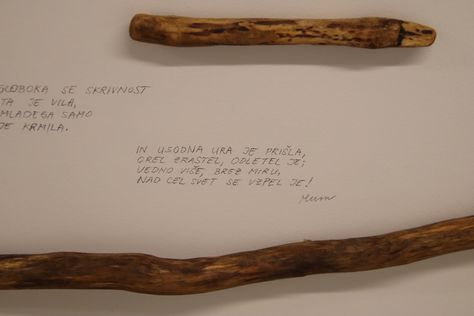 GLOBOKA SE SKRIVNOST
TA JE VILA,
MLADEGA SAMO
JE KRMILA.
IN USODNA URA JE PRIŠLA,
OREL ZRASTEL, ODLETEL JE;
VEDNO VIŠE, BREZ MIRU,
NAD CEL SVET SE VZPEL JE!